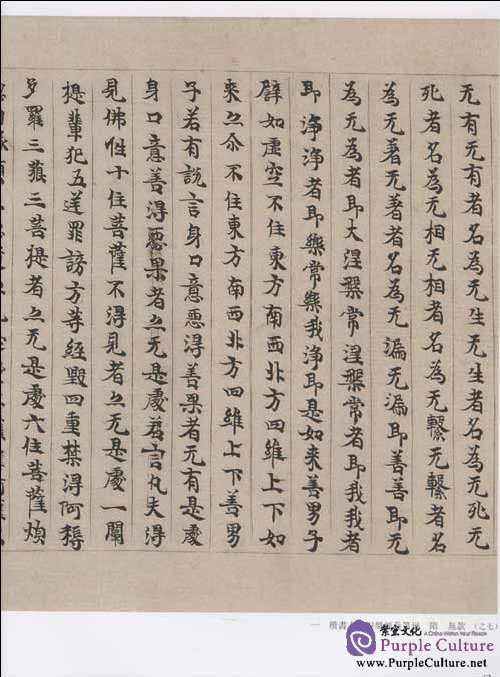 无有无有者名為无生无生者名為无死无
死者名為无相无相者名為无繫无繫者名
為无著无著者名為无漏无漏即善善即无
為无為者即大涅槃常涅槃常者即我我者
即淨淨者即樂常樂我淨即是如來善男子
譬如虛空不住東方南西北方四維上下如
來亦尒不住東方南西北方四維上下善男
子若有說言身口意惡得善果者无有是處
身口意善得惡果者亦无是處若言凡夫得
見佛性十住菩薩不得見者亦无是處一闡
提輩犯五逆罪謗方等經毀四重禁得阿耨
多羅三藐三菩提者亦无是處六住菩薩煩
一 楷書 隋 無款 (之七)
紫室文化
A China Wisdom Your Reach
Purple Culture
www.PurpleCulture.net